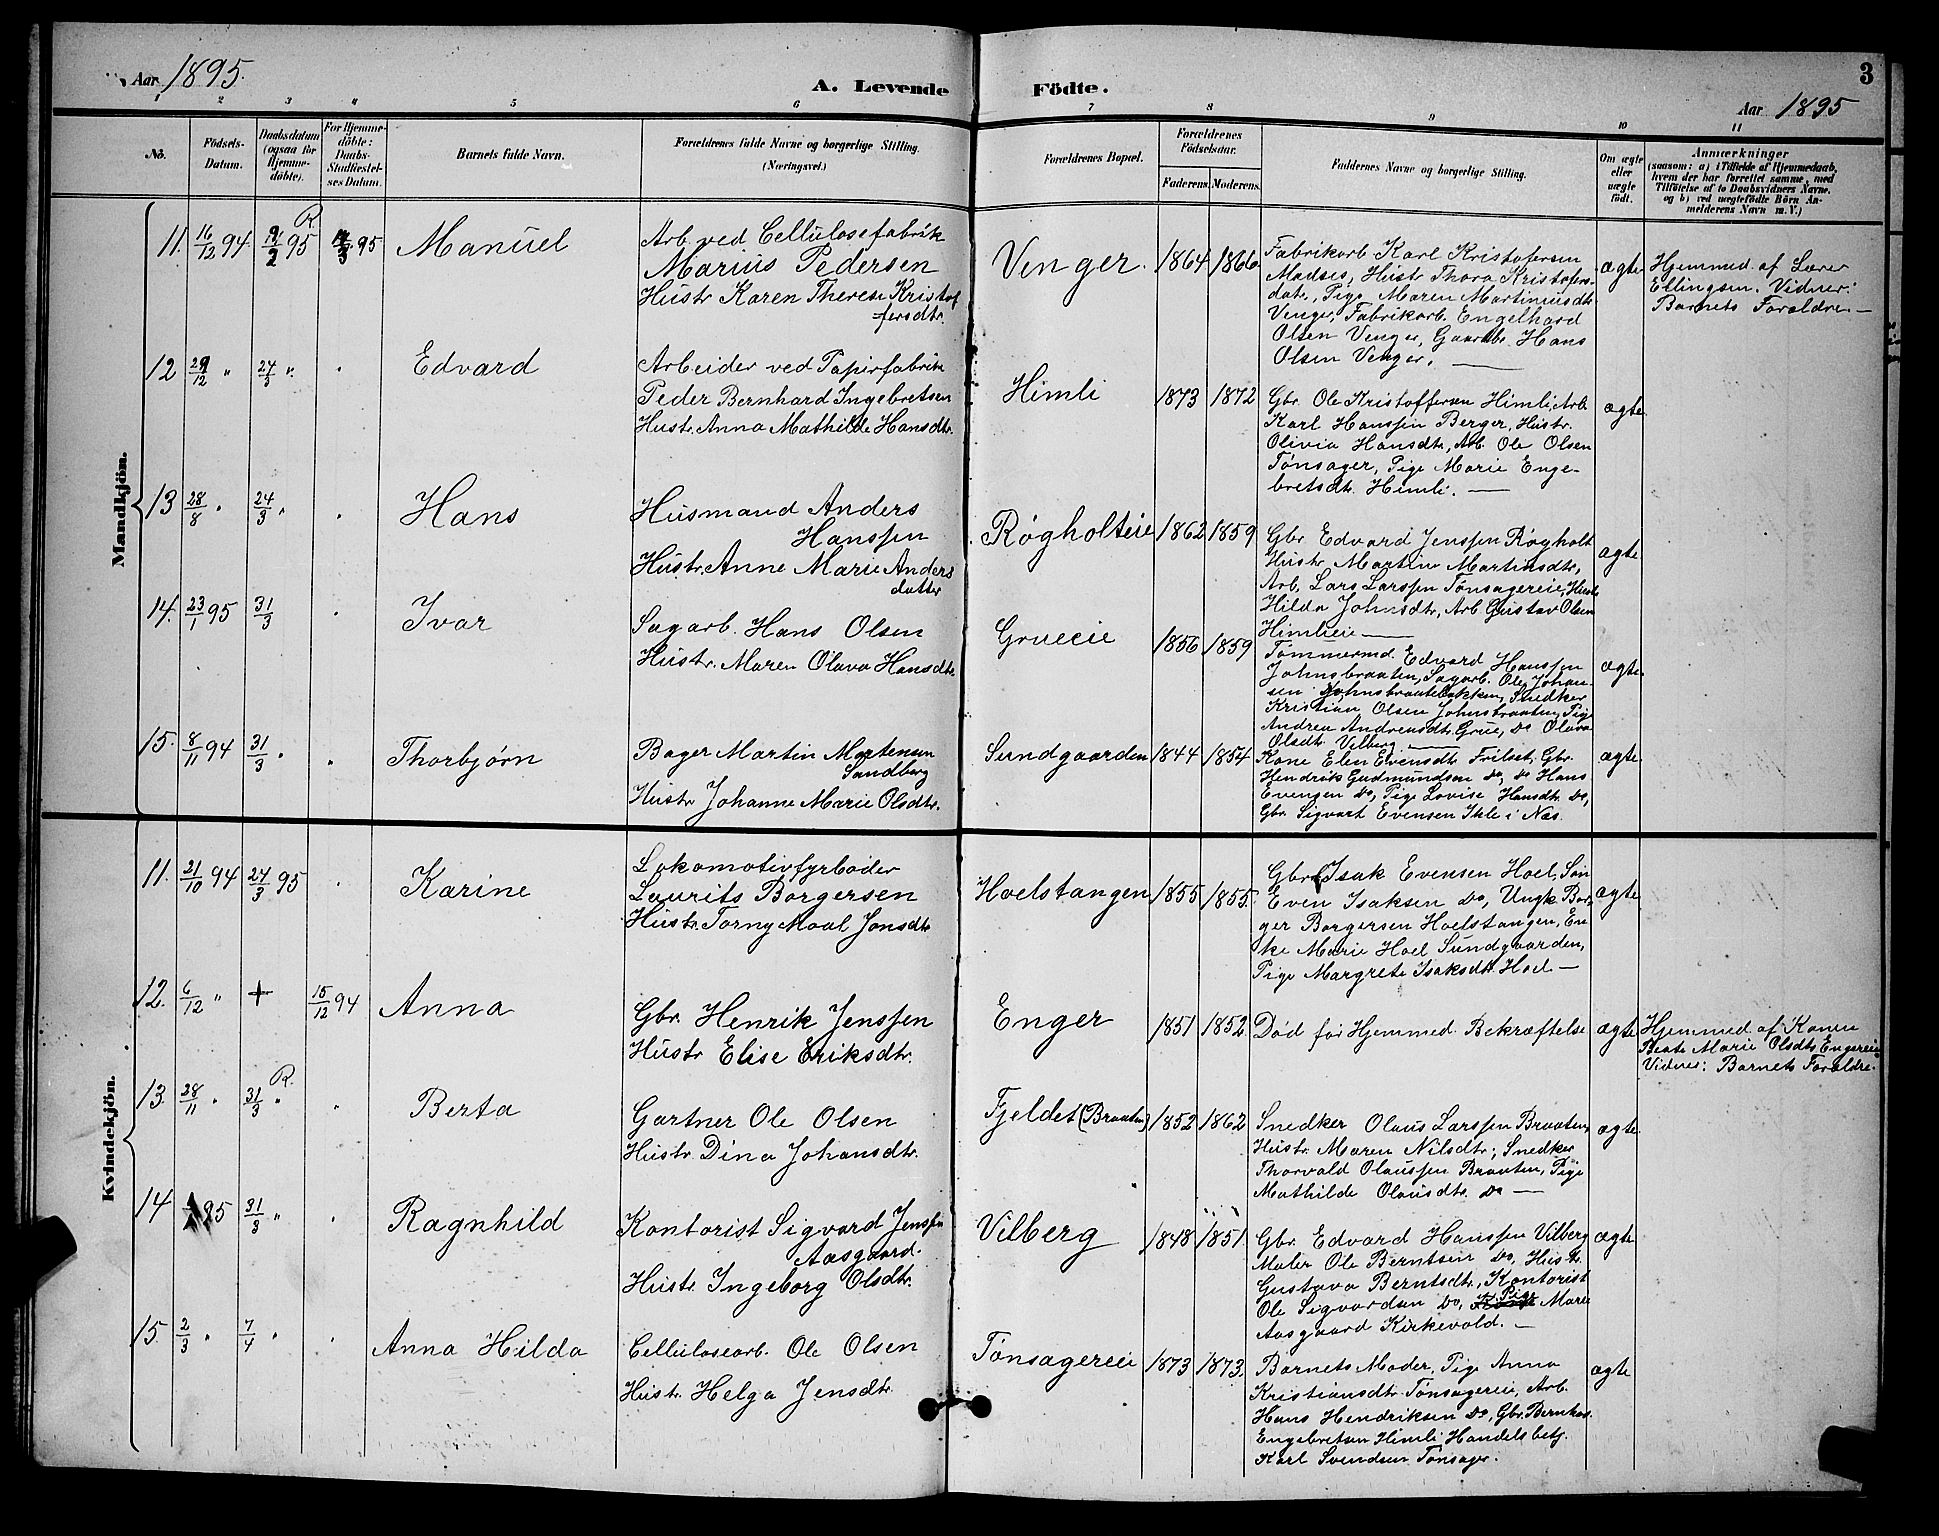 Aar 1895.
A. Levende Födte.
3
Aar 1895
1 2 3 4 5 6 7 8 9 10 11
No.
Födsels-Datum.
Daabsdatum (ogsaa for Hjemme-döbte).
For Hjemme-döbte: Daabs-Stadfæstel-ses Datum.
Barnets fulde Navn.
Forældrenes fulde Navne og borgerlige Stilling. (Næringsvei.)
Forældrenes Bopæl.
Forældrenes Födselsaar.
Faderens. Moderens.
Faddernes Navne og borgerlige Stilling.
Om ægte eller uægte födt.
Anmærkninger
(saasom: a) i Tilfælde af Hjemmedaab, hvem der har forrettet samme, med Tilföielse af to Daabsvidners Navne, og b) ved uægtefödte Börn An-melderens Navn m. V.)
Mandkjön.
11. 16/12 94. 95 R. 95
Manuel
Arb. ved Cellulosefabrik
Marius Pedersen
Hustr. Karen Therese Kristof
fersdtr.
Venger. 1864 1866
Fabrikarb. Karl Kristofersen
Madses, Hustr. Thora Kristofers-
datr, Pige Maren Martiniusdtr
Venger, Fabrikarb. Engelhard
Olsen Venger, Gaardbr. Hans
Olsen Venger.
ægte
Hjemmed. af Lærer
Ellingsen. Vidner:
Barnets Forældre. —
12 29/12 " 24/3 "
Edvard
Arbeider ved Papirfabrik
Peder Bernhard Ingebretsen
Hustr. Anna Mathilde Hansdtr.
Himli 1873 1872
Gbr. Ole Kristoffersen Himli, Arb.
Karl Hanssen Berger, Hustr.
Olivia Hansdtr, Arb. Ole Olsen
Tønsager, Pige Marie Enge-
bretsdtr. Himli. —
ægte
13 28/8 " 24/3 "
Hans
Husmand Anders
Hanssen
Hustr. Anne Marie Anders
datter
Røgholteie 1862 1859
Gbr. Edvard Jenssen Røgholt
Hustr. Martine Martinsdtr,
Arb. Lars Larssen Tønsagereie, Hustr.
Hilda Johnsdtr, Arb. Gustav Olsen
Himlieie —
ægte
14. 23/1 95 31/3
Ivar
Sagarb. Hans Olsen
Hustr. Maren Olava Hansdtr.
Grueeie 1856 1859
Tømmermd. Edvard Hanssen
Johnsbraaten, Sagarb. Ole Johan-
sen Johnsbraatebakken, Snedker
Kristian Olsen Johnsbraaten, Pige
Andrea Andreasdtr. Grue, do Olava
Olsdtr. Vilberg. —
ægte.
15. 8/11 94 31/3 "
Thorbjørn
Bager Martin Mortensen
Sandberg
Hustr. Johanne Marie Olsdtr.
Sundgaarden 1844 1854
Kone Elen Evensdtr Frilset, Gbr.
Hendrik Gudmundsen do, do Hans
Evensen do, Pige Lovise Hansdtr do,
Gbr. Sigvart Evensen Ihle i Nes.
ægte
Kvindekjön.
11. 21/10 94 24/3 95
Karine
Lokomotivfyrbøder
Laurits Borgersen
Hustr. Torny Moal Jonsdtr
Hoelstangen 1855 1855
Gbr. Isak Evensen Hoel, Søn
Even Isaksen do, Ungk. Bor-
ger Borgersen Hoelstangen, En-
ke Marie Hoel Sundgaarden,
Pige Margrete Isaksdtr. Hoel —
ægte
12. 6/12 " + 15/12 94
Anna
Gbr. Henrik Jenssen
Hustr Elise Eriksdtr.
Enger 1851 1852
Død før Hjemmed. Bekræftelse
ægte
Hjemmed. af Konen
Beate Marie Olsdtr Engereie
Vidner: Barnets Forældre.
13. 28/11 " 31/3 " R.
Berta
Gartner Ole Olsen
Hustr. Dina Johansdtr.
Fjeldet (Braaten) 1852 1862
Snedker Olaus Larssen Braaten,
Hustr. Maren Nilsdtr; Snedker
Thorvald Olaussen Braaten, Pige
Mathilde Olausdtr. do —
ægte
14 95 31/3 "
Ragnhild
Kontorist Sigvard Jenssen
Aasgaard.
Hustr. Ingeborg Olsdtr.
Vilberg 1848 1851.
Gbr. Edvard Hanssen Vilberg
Maler Ole Berntsen do, Hustr.
Gustava Berntsdtr., Kontorist
Ole Sigvardsen do, Pige Marie
Aasgaard Kirkevold. —
ægte
15. 2/3 " 7/4 "
Anna Hilda
Cellulosearb. Ole Olsen
Hustr. Helga Jensdtr.
Tønsagereie 1873 1873.
Barnets Moder, Pige Anna
Kristiansdtr. Tønsagereie, Arb.
Hans Hendriksen do, Gbr. Bernhar.
Engebretsen Himli Handelsbetj.
Karl Svendsen Tønsager.
ægte